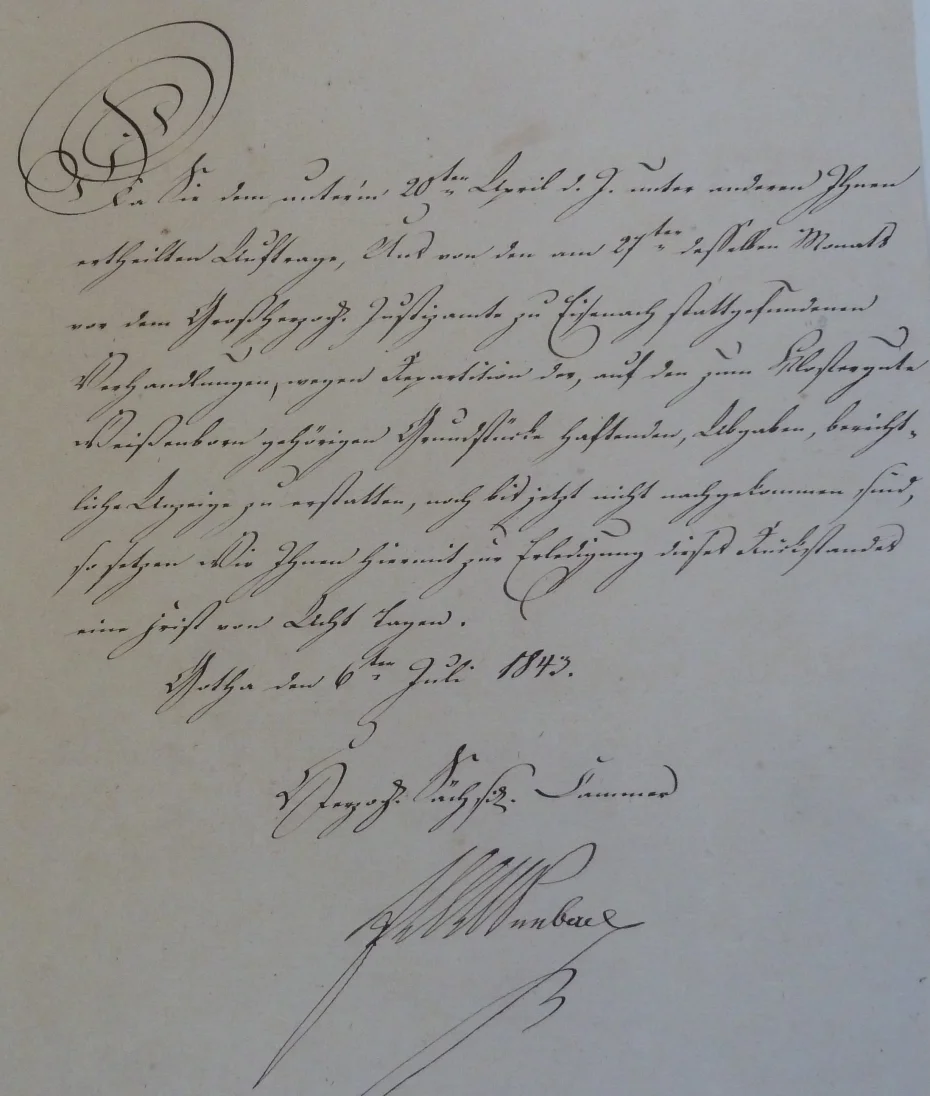 Da Sie dem unterm 20ten April d. J. unter anderen Ihnen
ertheilten Auftrage, Uns von den am 27ten desselben Monats
vor dem Großherzogl. Justizamte zu Eisenach stattgefundenen
Verhandlungen, wegen Repartition der, auf den zum Klostergute
Weißenborn gehörigen Grundstücke haftenden, Abgaben, bericht-
liche Anzeige zu erstatten, noch bis jetzt nicht nachgekommen sind,
so setzen Wir Ihnen hiermit zur Erledigung dieses Rückstandes
eine Frist von Acht Tagen.
Gotha den 6ten Juli 1843.
Herzogl. Sächsis. Cammer